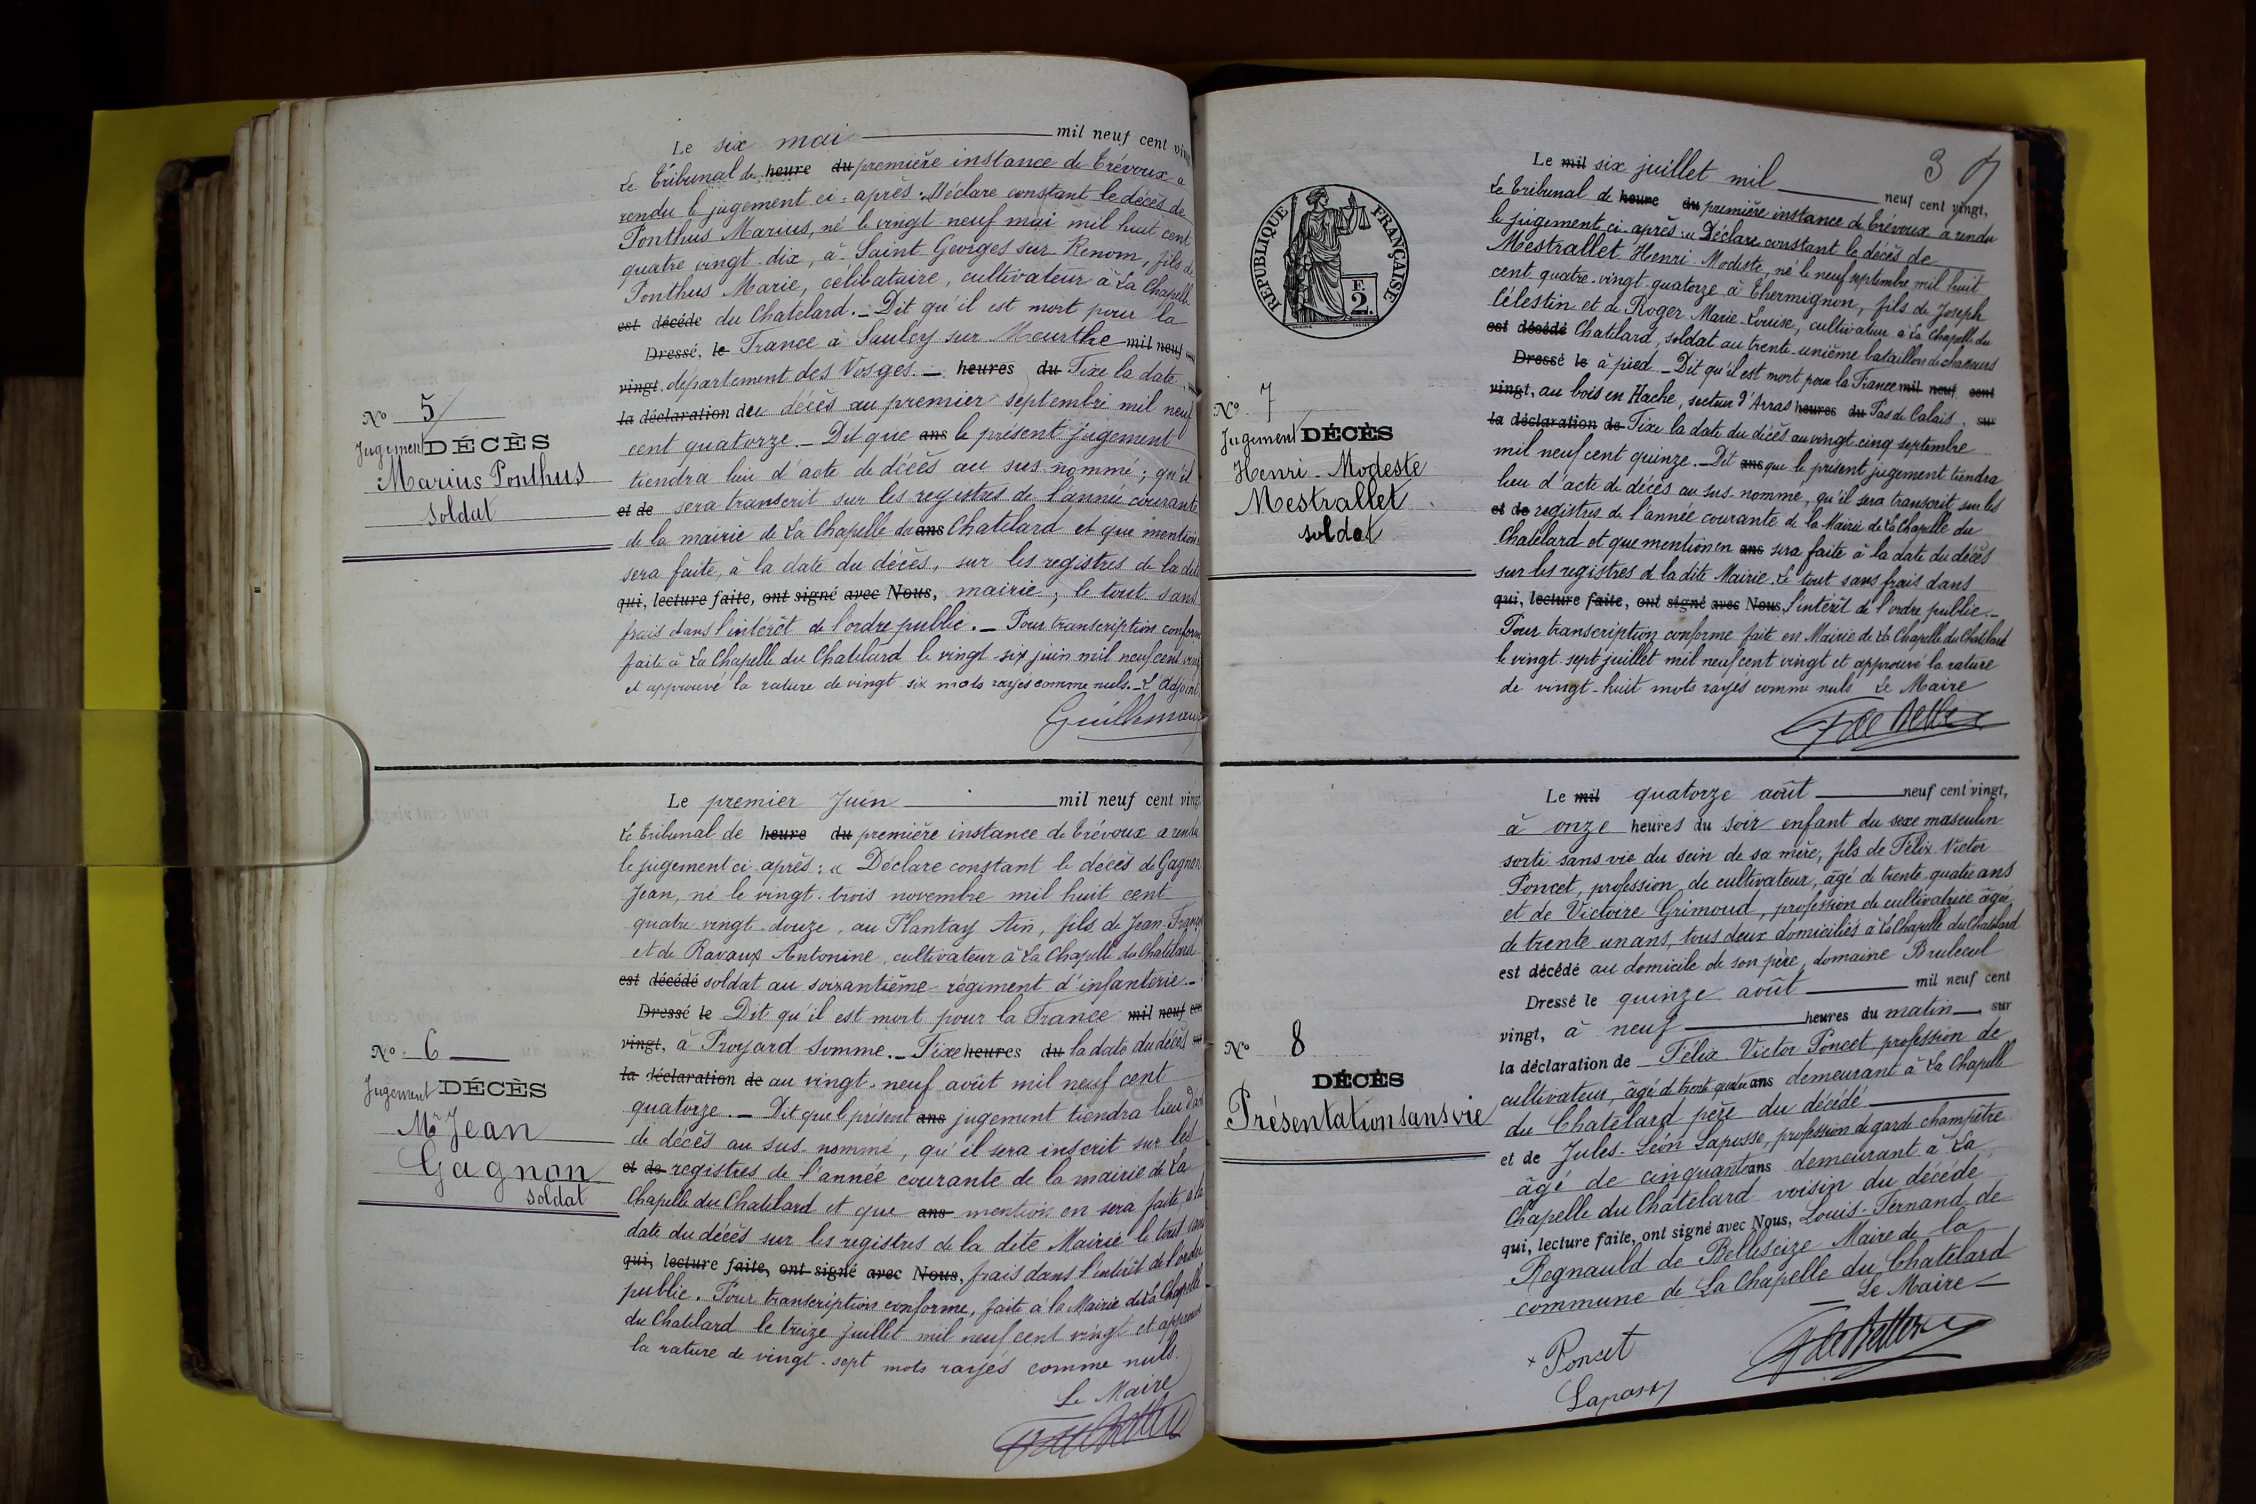 Le six mai mil neuf cent vingt
Le Tribunal de heure du première instance de Trévoux a
rendu le jugement ci-après. Déclare constant le décès de
Ponthus Marius, né le vingt neuf mai mil huit cent
quatre vingt-dix, à Saint Georges sur Renom, fils de
Ponthus Marie, célibataire, cultivateur à La Chapelle
est décédé du Chatelard. _ Dit qu'il est mort pour la
Dressé, le France à Saulcy sur Meurthe mil neuf cent
vingt. département des Vosges. _ heures du Fixe la date
la déclaration de du décès au premier septembre mil neuf
cent quatorze. _ Dit que ans le présent jugement
tiendra lieu d'acte de décès au sus-nommé; qu'il
et de sera transcrit sur les registres de l'année courante
de la mairie de La Chapelle du ans Chatelard et que mention
sera faite, à la date du décès, sur les registres de la dite
qui, lecture faite, ont signé avec Nous, mairie, le tout sans
frais dans l'intérêt de l'ordre public. _ Pour transcription conforme
faite à La Chapelle du Chatelard le vingt-six juin mil neuf cent vingt
et approuvé la rature de vingt-six mots rayés comme nuls. _ L'Adjoint
N° 5
Jugement DÉCÈS
Marius Ponthus
soldat
Le premier Juin mil neuf cent vingt
Le Tribunal de heure du première instance de Trévoux a rendu
le jugement ci-après: « Déclare constant le décès de Gagnon
Jean, né le vingt-trois novembre mil huit cent
quatre vingt-douze, au Plantay Ain, fils de Jean-François
et de Ravaux Antonine, cultivateur à La Chapelle du Chatelard
est décédé soldat au soixantième régiment d'infanterie. _
Dressé le Dit qu'il est mort pour la France mil neuf cent
vingt, à Proyard Somme. _ Fixe heures du la date du décès sur
la déclaration de au vingt-neuf août mil neuf cent
quatorze. _ Dit que le présent ans jugement tiendra lieu d'acte
de décès au sus-nommé, qu'il sera inscrit sur les
et de registres de l'année courante de la mairie de La
Chapelle du Chatelard et que ans mention en sera faite, à la
date du décès sur les registres de la dite Mairie le tout sans
qui, lecture faite, ont signé avec Nous, frais dans l'intérêt de l'ordre
public. Pour transcription conforme, faite à la Mairie de La Chapelle
du Chatelard le treize juillet mil neuf cent vingt et approuvé
la rature de vingt-sept mots rayés comme nuls.
Le Maire
N° 6
Jugement DÉCÈS
Jean
Gagnon
soldat
3
RÉPUBLIQUE FRANÇAISE
F.
2.
Le mil six juillet mil neuf cent vingt,
Le Tribunal de heure du première instance de Trévoux a rendu
le jugement ci-après: « Déclare constant le décès de
Mestrallet Henri-Modeste, né le neuf septembre mil huit
cent quatre-vingt-quatorze à Thermignon, fils de Joseph
Célestin et de Roger Marie-Louise, cultivateur à La Chapelle du
est décédé Chatelard, soldat au trente-unième bataillon de chasseurs
Dressé le à pied _ Dit qu'il est mort pour la France mil neuf cent
vingt, au bois en Hache, secteur d'Arras heures du Pas de Calais. sur
la déclaration de Fixe la date du décès au vingt-cinq septembre
mil neuf cent quinze. _ Dit ans que le présent jugement tiendra
lieu d'acte de décès au sus-nommé, qu'il sera transcrit sur les
et de registres de l'année courante de la Mairie de La Chapelle du
Chatelard et que mention en ans sera faite à la date du décès
sur les registres de la dite Mairie. Le tout sans frais dans
qui, lecture faite, ont signé avec Nous, l'intérêt de l'ordre public. _
Pour transcription conforme fait en Mairie de La Chapelle du Chatelard
le vingt-sept juillet mil neuf cent vingt et approuvé la rature
de vingt-huit mots rayés comme nuls Le Maire
N° 7
Jugement DÉCÈS
Henri-Modeste
Mestrallet
soldat
Le mil quatorze août neuf cent vingt,
à onze heures du soir enfant du sexe masculin
sorti sans vie du sein de sa mère, fils de Félix Victor
Poncet, profession de cultivateur, âgé de trente-quatre ans
et de Victoire Grimoud, profession de cultivatrice âgée
de trente un ans, tous deux domiciliés à La Chapelle du Chatelard
est décédé au domicile de son père, domaine Brulecul
Dressé le quinze août mil neuf cent
vingt, à neuf heures du matin, sur
la déclaration de Félix-Victor Poncet profession de
cultivateur, âgé de trente quatre ans demeurant à La Chapelle
du Chatelard père du décédé
et de Jules-Léon Laposse, profession de garde champêtre
âgé de cinquante ans demeurant à La
Chapelle du Chatelard voisin du décédé
qui, lecture faite, ont signé avec Nous, Louis-Fernand de
Regnauld de Bellescize Maire de la
commune de La Chapelle du Chatelard
Le Maire
Poncet
N° 8
DÉCÈS
Présentation sans vie